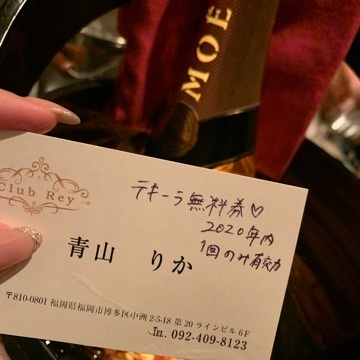 MOE
Club Rey
テキーラ無料券♡
2020年内
1回のみ有効
青山 りか
〒810-0801 福岡県福岡市博多区中洲2-5-18 第20ラインビル6F
TEL. 092-409-8123